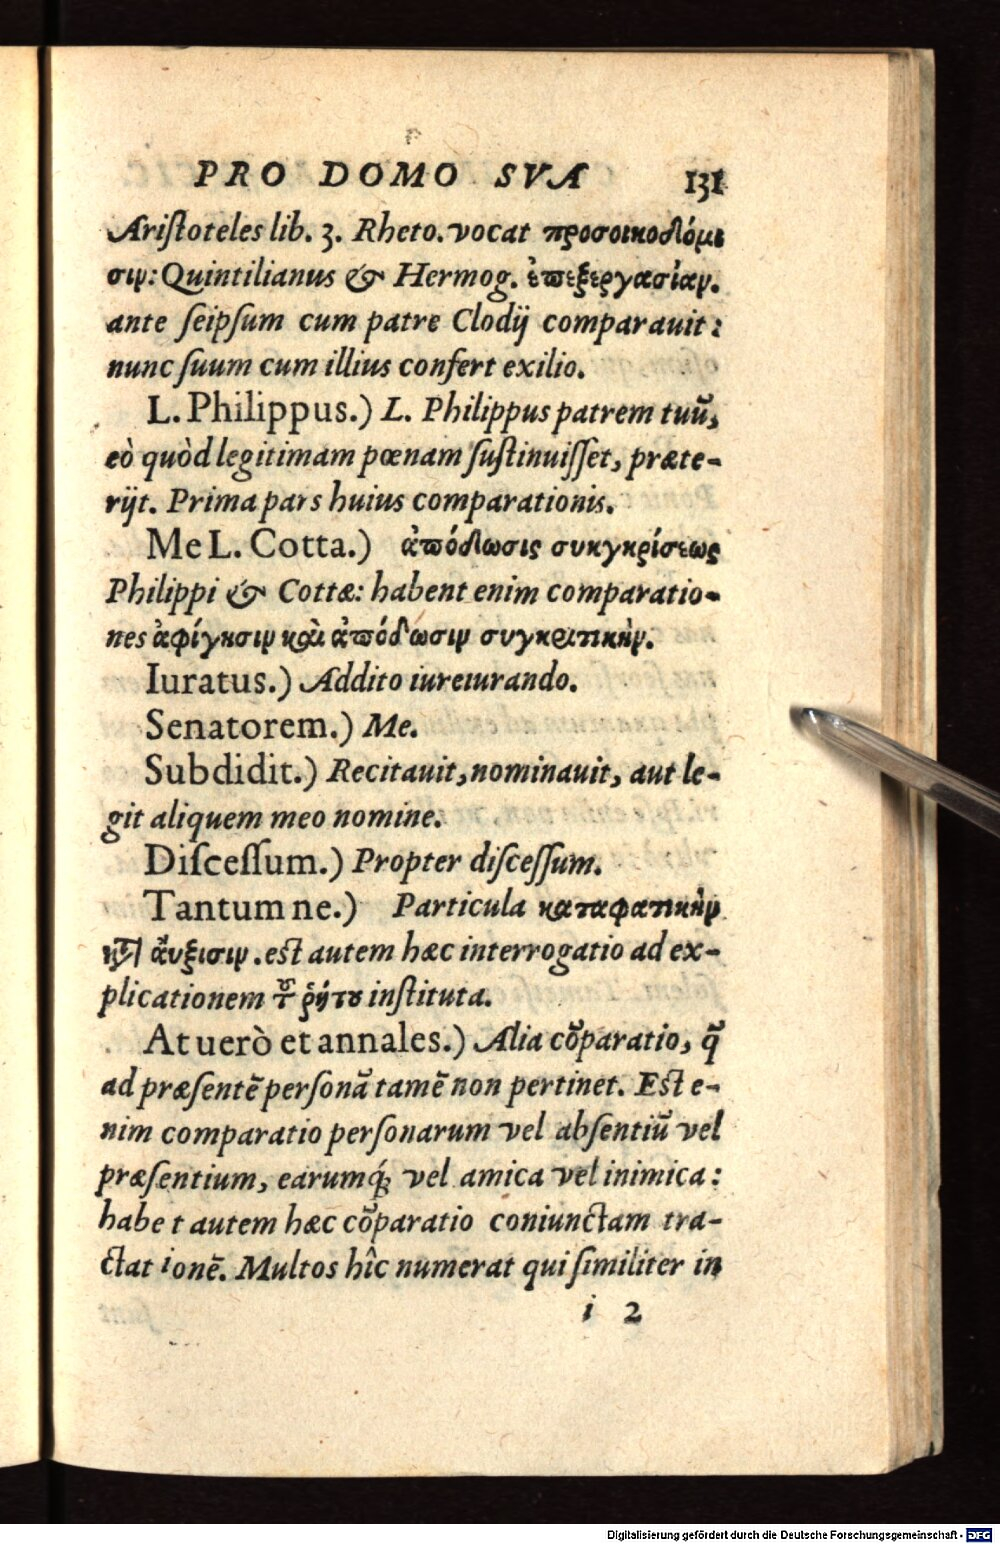 PRO DOMO SVA 131
Ariſtoteles lib. 3. Rheto. vocat προσοικοδόμι
σιν: Quintilianus & Hermog. ἐπεξεργασίαν.
ante ſeipſum cum patre Clodij comparauit:
nunc ſuum cum illius confert exilio.
L. Philippus.) L. Philippus patrem tuũ,
eò quòd legitimam pœnam ſuſtinuiſſet, præte-
rijt. Prima pars huius comparationis.
Me L. Cotta.) ἀπόδωσις συκγκρίσεως
Philippi & Cottæ: habent enim comparatio-
nes ἀφίγησιν καὶ ἀπόδωσιν συγκριτικὴν.
Iuratus.) Addito iureiurando.
Senatorem.) Me.
Subdidit.) Recitauit, nominauit, aut le-
git aliquem meo nomine.
Diſceſſum.) Propter diſceſſum.
Tantum ne.) Particula καταφατικὴν
κατ᾽ ἄυξισιν. eſt autem hæc interrogatio ad ex-
plicationem τοῦ ῥήτου inſtituta.
At uerò et annales.) Alia cõparatio, q̃
ad præſentẽ perſonã tamẽ non pertinet. Eſt e-
nim comparatio perſonarum vel abſentiũ vel
præſentium, earumq́; vel amica vel inimica:
habe t autem hæc cõparatio coniunctam tra-
ctat ionẽ. Multos hîc numerat qui ſimiliter in
i 2
Digitalisierung gefördert durch die Deutsche Forschungsgemeinschaft - DFG